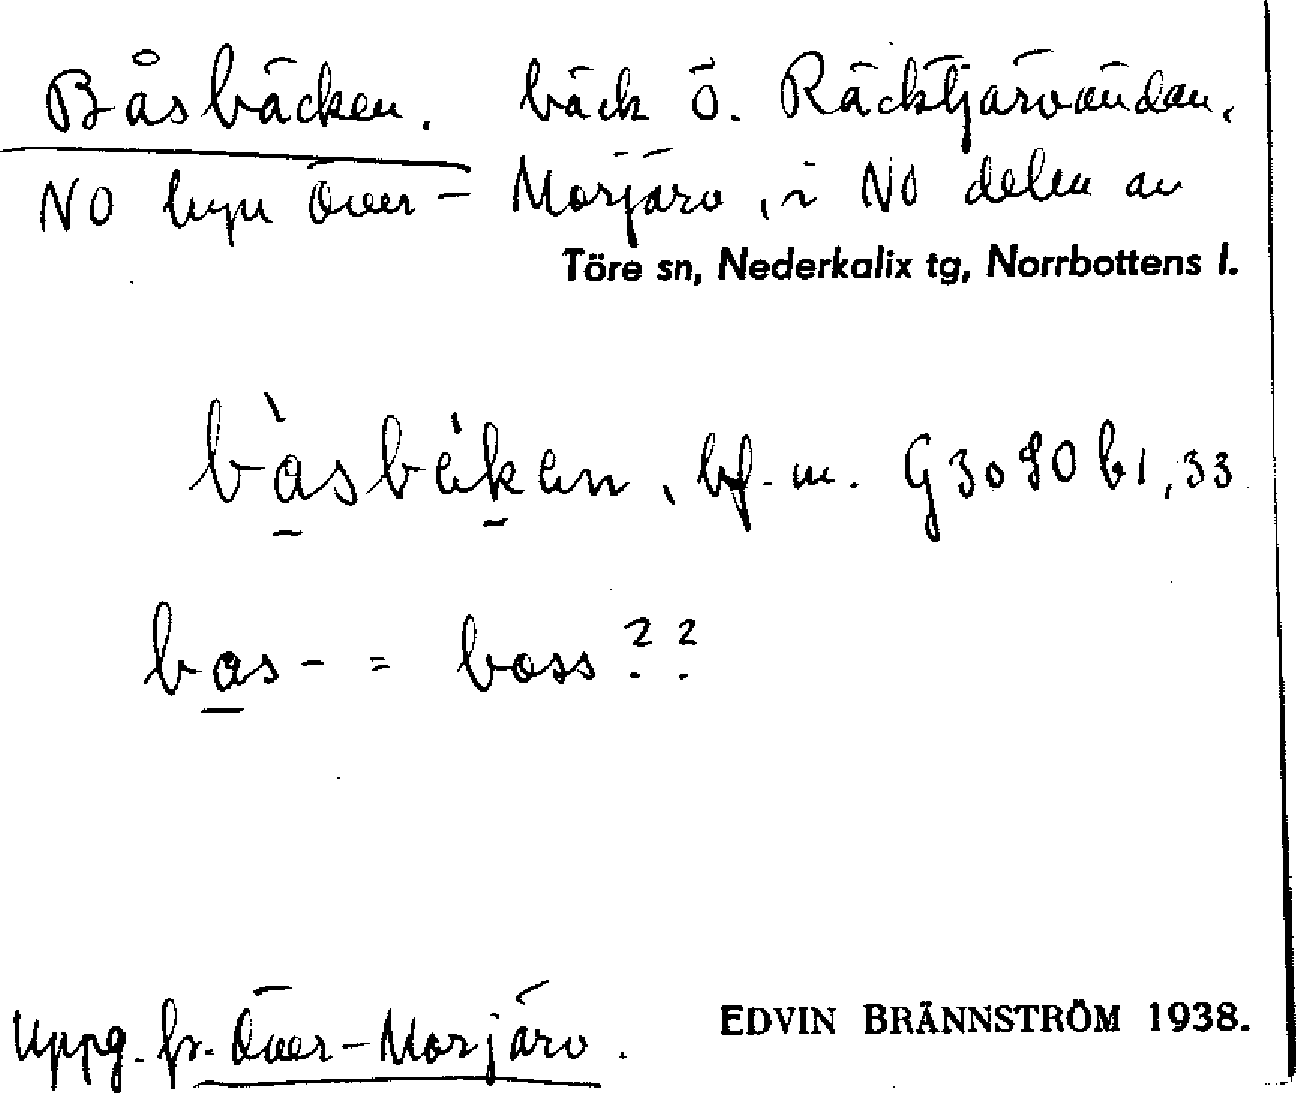 Båsbäcken. bäck ö. Räcktjärvändan,
NO byn Över-Morjärv, i NO delen av
Töre sn, Nederkalix tg, Norrbottens l.
bàsbékan, bf. m. G3090 b1,33
bas- = boss??
Uppg. fr. Över-Morjärv. EDVIN BRÄNNSTRÖM 1938.